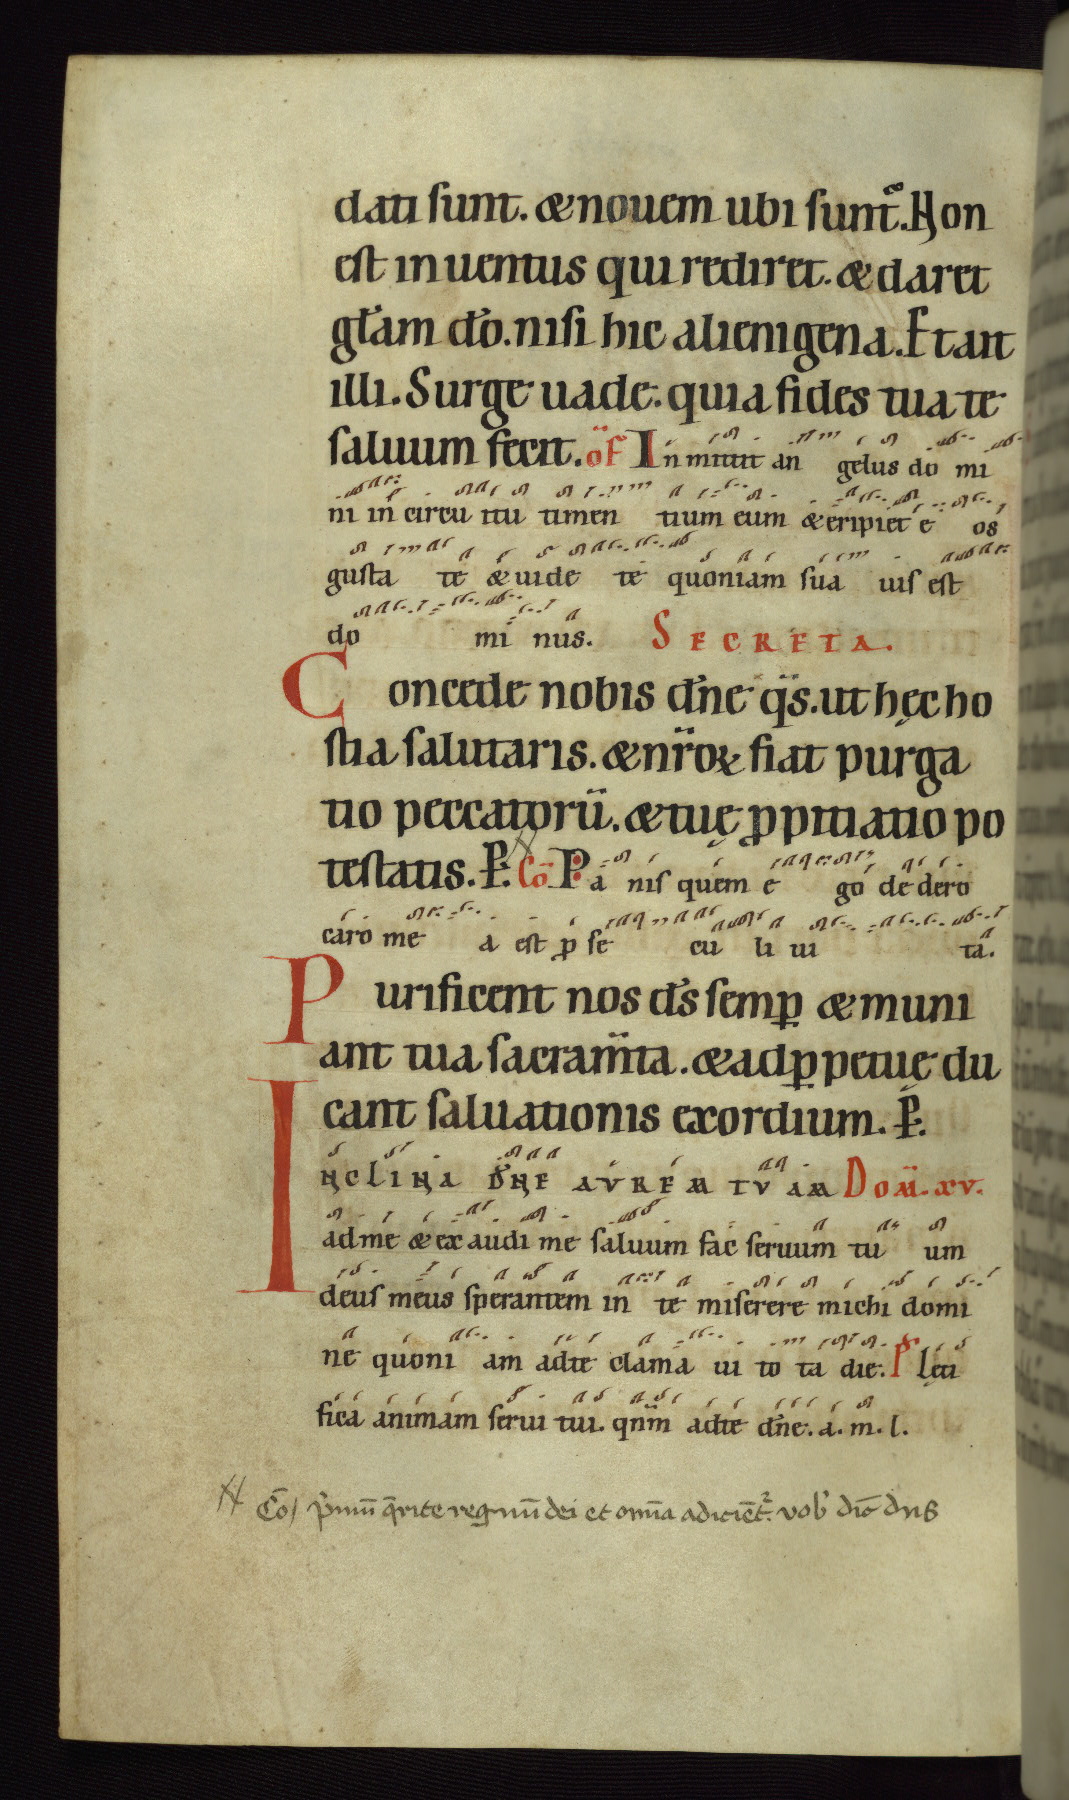 dati sunt. & nouem ubi sunt. Non
est inuentus qui rediret. & daret
gl̄am dō. nisi hic alienigena. Et ait
illi. Surge uade. quia fides tua te
saluum fecit. oF̄ Inmittit an gelus do mi
ni in circu itu timen tium eum & eripiet e os
gusta te & uide te quoniam sua uis est
do mi nus. SECRETA.
Concede nobis dn̄e q̄s. ut hęc ho
stia salutaris. & nr̄oꝝ fiat purga
tio peccatorū. & tuę ꝓpitiatio po
testatis. P. Cō Pa nis quem e go dedero
caro me a est ꝓ se cu li ui ta.
Purificent nos d̄s semꝑ & muni
ant tua sacram̄ta. & ad ꝑpetuę du
cant saluationis exordium. P.
INCLINA DN̄E AVREM TVAM DOM̄. XV.
ad me & exaudi me saluum fac seruum tu um
deus meus sperantem in te miserere michi domi
ne quoni am ad te clama ui to ta die. P̄ Lęti
fica animam serui tui. qn̄m ad te dn̄e. a. m. l.
Cō p̄mū q̄rite regnū dei et om̄ia adiciēt᷑. vob̄ dic̄ dn̄s